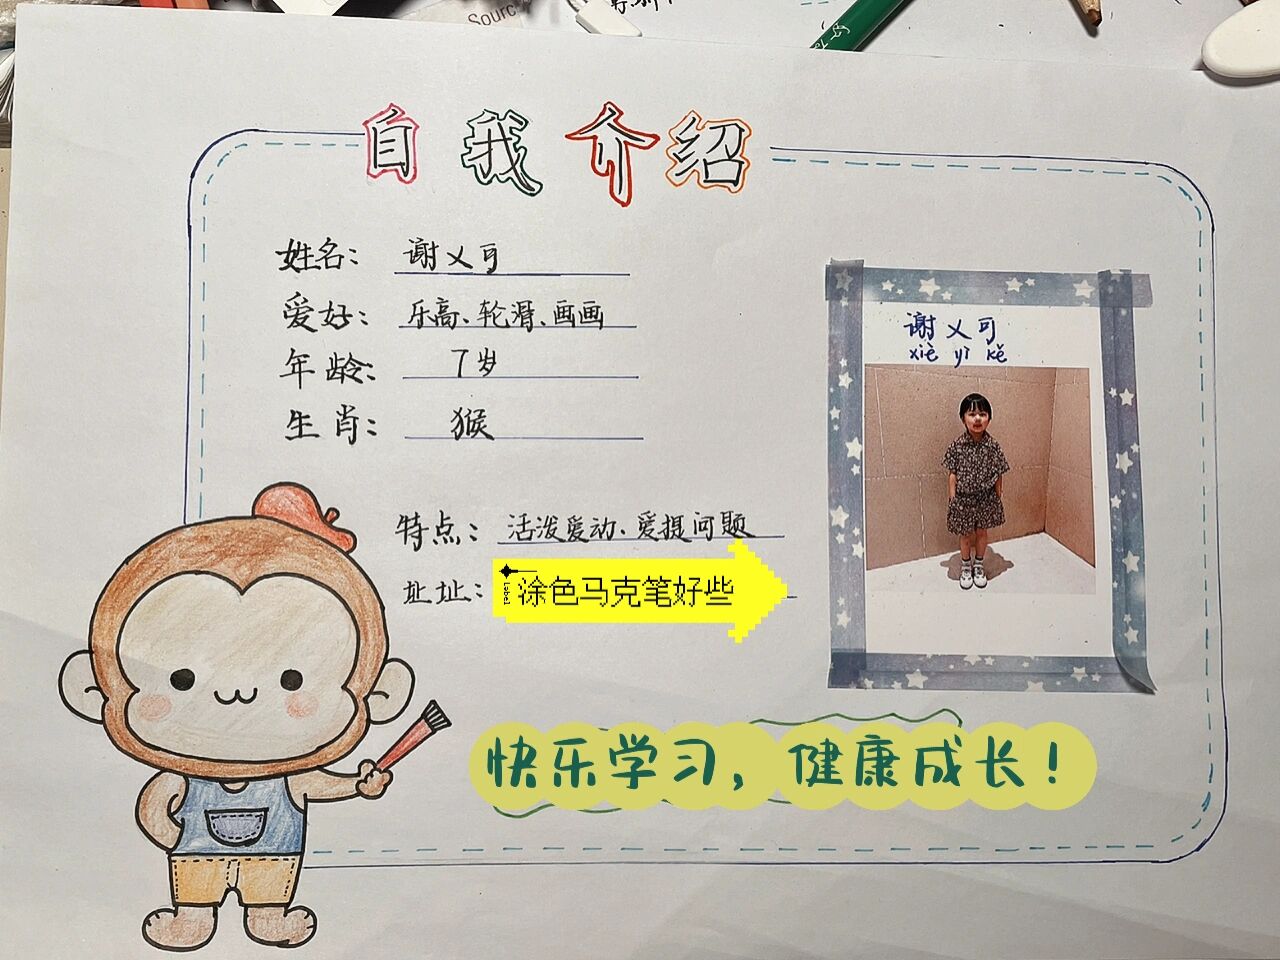 Sourc
自我介绍
姓名: 谢乂可
爱好: 乐高、轮滑、画画
年龄: 7岁
生肖: 猴
特点: 活泼爱动、爱提问题
址址: 涂色马克笔好些
谢乂可
xiè yì kě
快乐学习，健康成长！